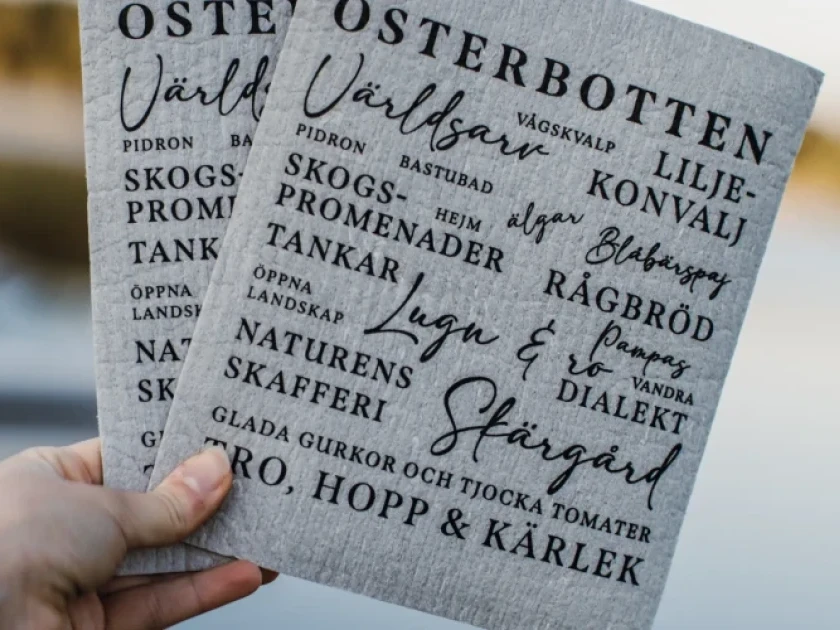 OSTE
Världs
PIDRON BA
SKOGS-
PROM
TANK
ÖPPNA
LANDSK
NAT
SK
ÖSTERBOTTEN
Världsarv
VÅGSKVALP
LILJE-
KONVALJ
PIDRON
BASTUBAD
SKOGS-
PROMENADER
HEJM
älgar
Blåbärspaj
TANKAR
RÅGBRÖD
ÖPPNA
LANDSKAP
Lugn & ro
Pampas
VANDRA
NATURENS
SKAFFERI
DIALEKT
Skärgård
GLADA GURKOR OCH TJOCKA TOMATER
TRO, HOPP & KÄRLEK